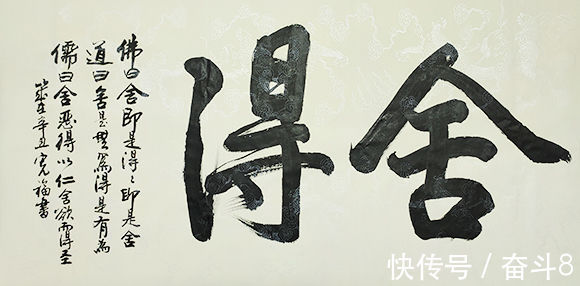 舍得
佛曰舍即是得々即是舍
道曰舍是無為得是有為
儒曰舍恶得以仁舍欲而得圣
歲在辛丑福書
快传号 / 奋斗8